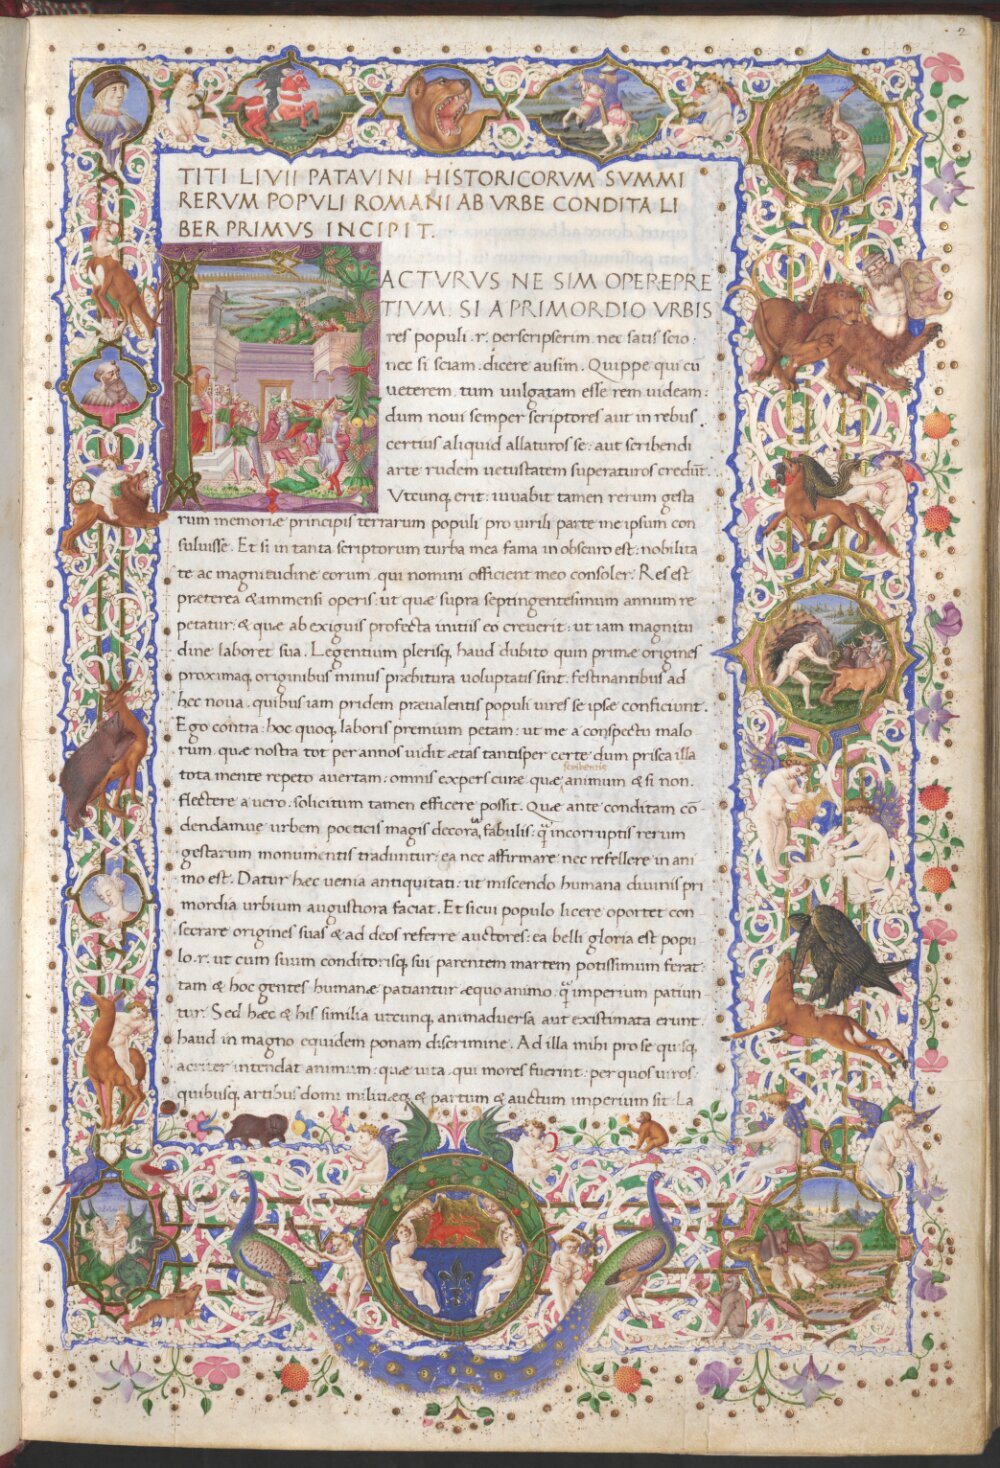 2
TITI LIVII PATAVINI HISTORICORVM SVMMI
RERVM POPVLI ROMANI AB VRBE CONDITA LI
BER PRIMVS INCIPIT.
FACTVRVS NE SIM OPEREPRE
TIVM: SI A PRIMORDIO VRBIS
res populi .r. perscripserim. nec satis scio:
nec si sciam. dicere ausim. Quippe qui cū
ueterem. tum uulgatam esse rem uideam:
dum noui semper scriptores aut in rebus
certius aliquid allaturos se: aut scribendi
arte rudem uetustatem superaturos credūt.
Vtcunq; erit: iuuabit tamen rerum gesta
rum memoriæ principis terrarum populi pro uirili parte me ipsum con
suluisse. Et si in tanta scriptorum turba mea fama in obscuro est: nobilita
te ac magnitudine eorum qui nomini officient meo consoler. Res est
præterea & immensi operis: ut quæ supra septingentesimum annum re
petatur: & quæ ab exiguis profecta initiis eo creuerit: ut iam magnitu
dine laboret sua. Legentium plerisq; haud dubito quin primæ origines
proximaq; originibus minus præbitura uoluptatis sint. festinantibus ad
hec noua. quibus iam pridem præualentis populi uires se ipse conficiunt.
Ego contra: hoc quoq; laboris premium petam: ut me a conspectu malo
rum. quæ nostra tot per annos uidit ætas tantisper certe dum prisca illa
tota mente repeto auertam: omnis expers curæ quæ scribentis animum & si non
flectere a uero. solicitum tamen efficere possit. Quæ ante conditam cō
dendamue urbem poeticis magis decora fabulis: q̄ incorruptis rerum
gestarum monumentis traduntur: ea nec affirmare nec refellere in ani
mo est. Datur hæc uenia antiquitati: ut miscendo humana diuinis pri
mordia urbium augustiora faciat. Et si cui populo licere oportet con
secrare origines suas & ad deos referre auctores: ea belli gloria est popu
lo .r. ut cum suum conditorisq; sui parentem martem potissimum ferat:
tam & hoc gentes humanæ patiantur æquo animo. q̄ imperium patiun
tur. Sed hæc & his similia utcunq; animaduersa aut existimata erunt.
haud in magno equidem ponam discrimine. Ad illa mihi pro se quisq;
acriter intendat animum: quæ uita. qui mores fuerint: per quos uiros
quibusq; artibus domi militiæq; & partum & auctum imperium sit. La